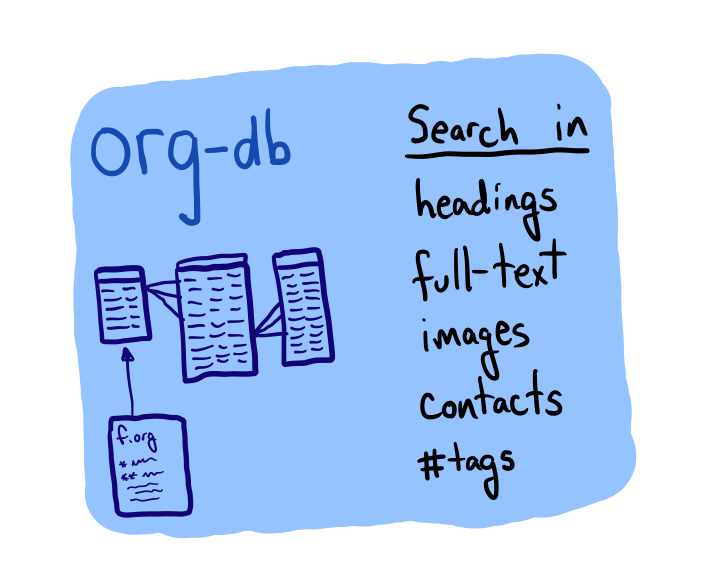 org-db
f.org
*
**
Search in
headings
full-text
images
contacts
#tags